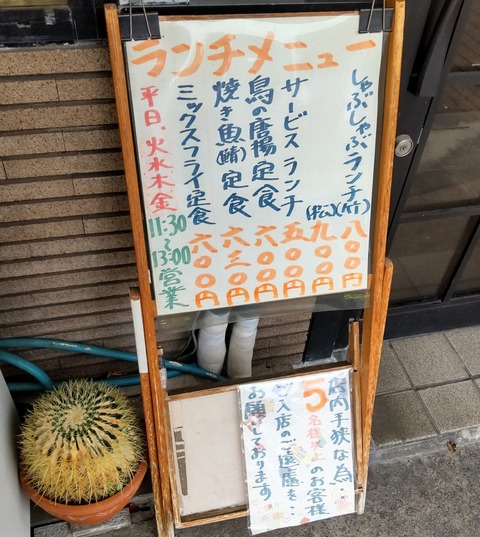 ランチメニュー
しゃぶしゃぶランチ(竹) 八〇〇円
(松) 九〇〇円
サービスランチ 五〇〇円
鳥の唐揚定食 六〇〇円
焼き魚(鯖)定食 六三〇円
ミックスフライ定食 六〇〇円
平日.火水木金
11:30~13:00営業
店内手狭な為‥
5名様以上のお客様
ご入店のご遠慮を‥
お願いしております